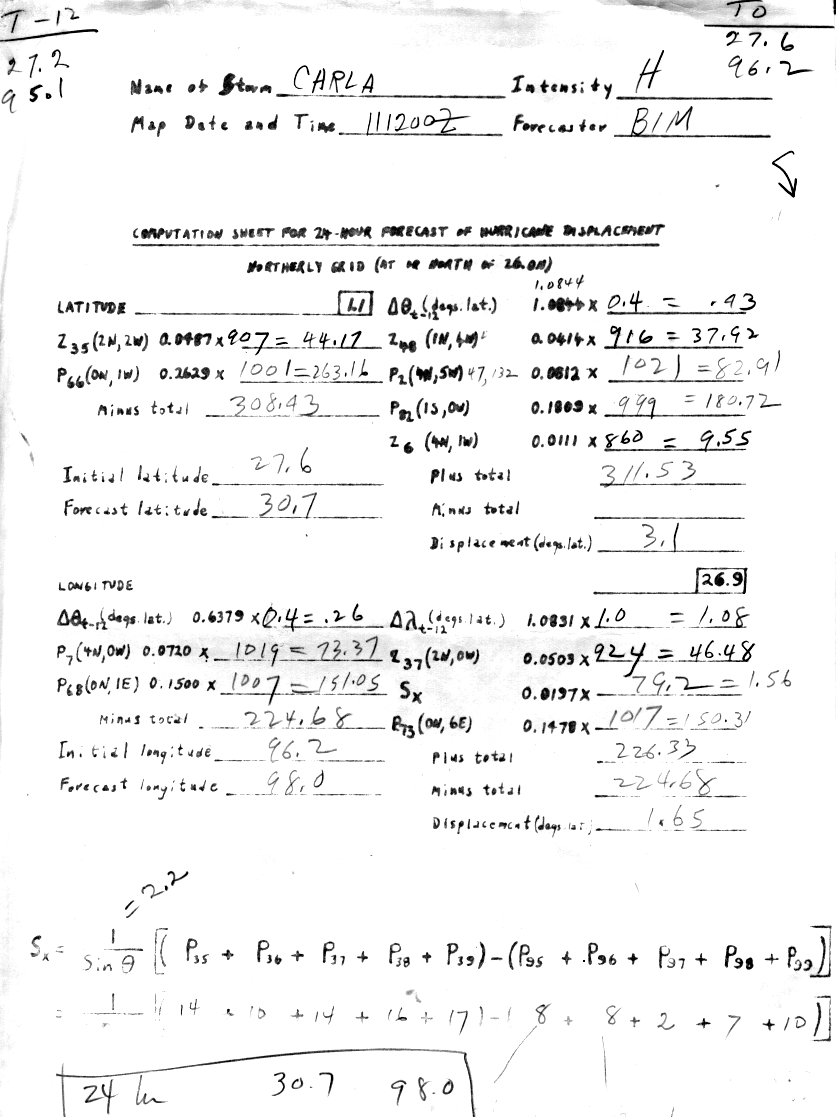 T-12
27.2
95.1
T0
27.6
96.2
Name of Storm CARLA Intensity H
Map Date and Time 111200Z Forecaster BIM
COMPUTATION SHEET FOR 24-HOUR FORECAST OF HURRICANE DISPLACEMENT
NORTHERLY GRID (AT OR NORTH OF 26.0N)
1.0844
LATITUDE 1.1 Δθt-12 (degs. lat.) 1.0844 x 0.4 = .43
Z35 (2N, 2W) 0.0487 x 907 = 44.17 Z48 (1N, 4W) 0.0414 x 916 = 37.92
P66 (0N, 1W) 0.2629 x 1001 = 263.16 P2 (4N, 5W) 47,132 0.0812 x 1021 = 82.91
Minus total 308.43 P82 (1S, 0W) 0.1809 x 999 = 180.72
Z6 (4N, 1W) 0.0111 x 860 = 9.55
Initial latitude 27.6 Plus total 311.53
Forecast latitude 30.7 Minus total
Displacement (degs. lat.) 3.1
LONGITUDE 26.9
Δθt-12 (degs. lat.) 0.6379 x 0.4 = .26 Δλt-12 (degs. lat.) 1.0831 x 1.0 = 1.08
P7 (4N, 0W) 0.0720 x 1019 = 73.37 Z37 (2N, 0W) 0.0503 x 924 = 46.48
P68 (0N, 1E) 0.1500 x 1007 = 151.05 Sx 0.0197 x 79.2 = 1.56
Minus total 224.68 P73 (0N, 6E) 0.1478 x 1017 = 150.31
Initial longitude 96.2 Plus total 226.33
Forecast longitude 98.0 Minus total 224.68
Displacement (degs. lat.) 1.65
= 2.2
Sx = 1/Sin θ [(P35 + P36 + P37 + P38 + P39) - (P95 + P96 + P97 + P98 + P99)]
= 1 [(14 + 10 + 14 + 16 + 17) - (8 + 8 + 2 + 7 + 10)]
24 hr 30.7 98.0